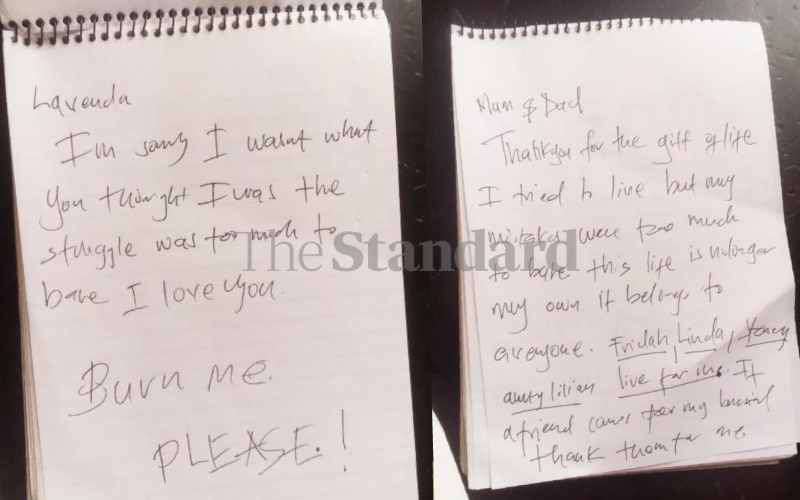 Lavenda
I'm sorry I wasnt what
you thought I was the
struggle was too much to
bare I love you.
Burn me.
PLEASE.!
Mum & Dad
Thankyou for the gift of life
I tried to live but my
mistakes were too much
to bare this life is nolonger
my own it belongs to
everyone. Fridah, Linda,
aunty lilian live for me. If
a friend comes for my burial
thank them for me
The Standard